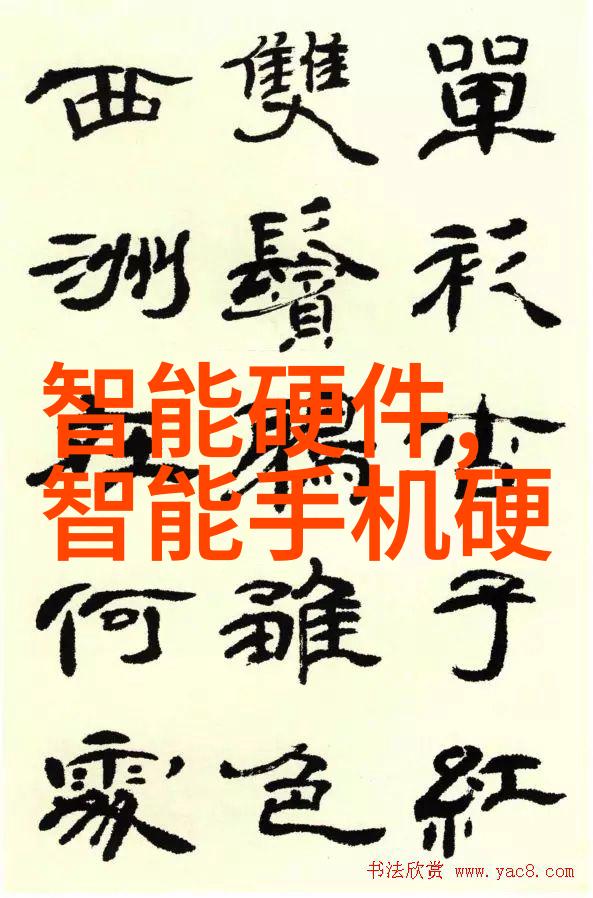 單衫杏子紅
雙鬢鴉雛色
西洲在何處
智能硬件,
智能手机硬
书法欣赏 www.yac8.com